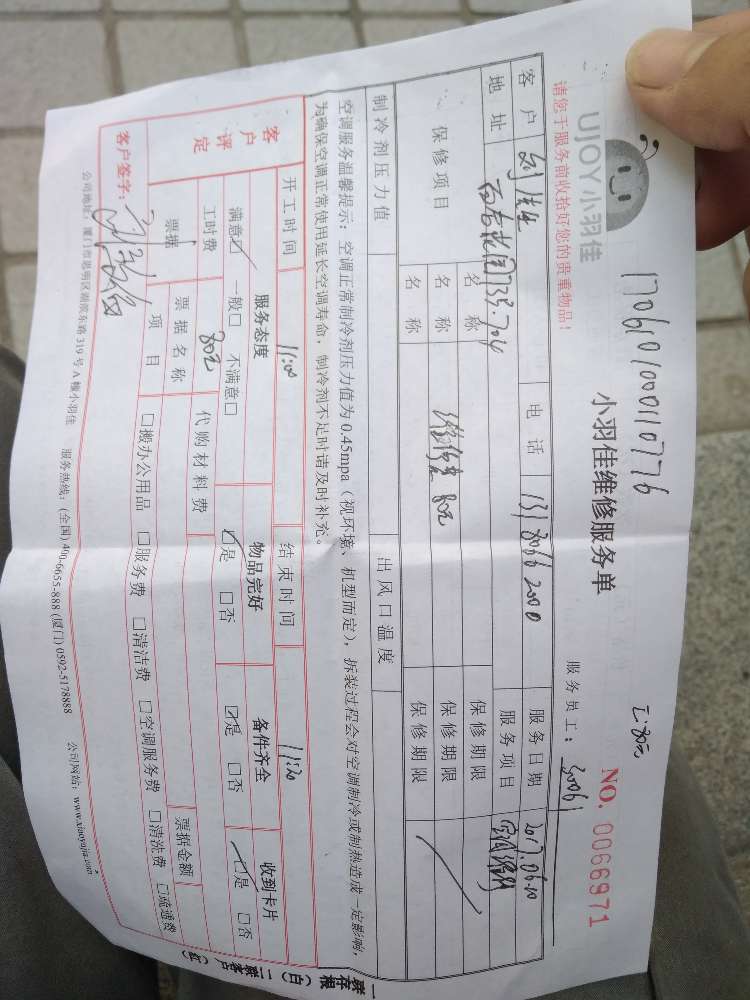 1706101000110776
UJOY小羽佳
小羽佳维修服务单
NO. 0066971
请您于服务前收拾好您的贵重物品!
服务员工:
客户
电话
服务日期 2017.06.10
地址
服务项目
保修项目
名称
保修期限
名称
80元
保修期限
名称
保修期限
制冷剂压力值
出风口温度
空调服务温馨提示:空调正常制冷剂压力值为0.45mpa(视环境、机型而定),拆装过程会对空调制冷或制热造成一定影响,
为确保空调正常使用延长空调寿命,制冷剂不足时请及时补充。
客户评定
开工时间 11:00
结束时间 11:20
服务态度
物品完好
备件齐全
收到卡片
满意☑ 一般□ 不满意□
☑是 □否
☑是 □否
☑是 □否
工时费 80元
代购材料费
票据
票据名称
票据金额
项目
□搬办公用品 □服务费 □清洁费 □空调服务费 □清洗费 □疏通费
客户签字:
公司地址:厦门市思明区湖滨东路319号A幢小羽佳 服务热线:(全国)400-6655-888 (厦门) 0592-5178888 公司网站:www.xiaoyujia.com
一联存根(白) 二联客户(红)